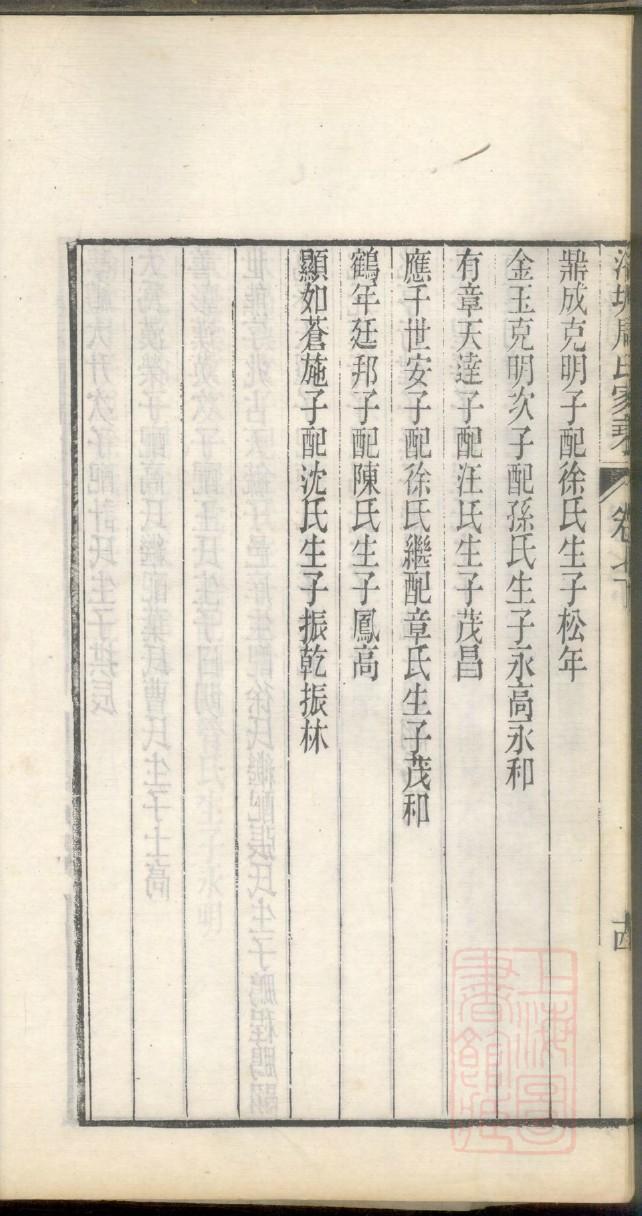 周氏家乘 卷七下
鼎成克明子配徐氏生子松年
金玉克明次子配孫氏生子永高永和
有章天逹子配汪氏生子茂昌
應千世安子配徐氏繼配章氏生子茂和
鶴年廷邦子配陳氏生子鳳高
顯如蒼施子配沈氏生子振乾振林
上海圖書館藏